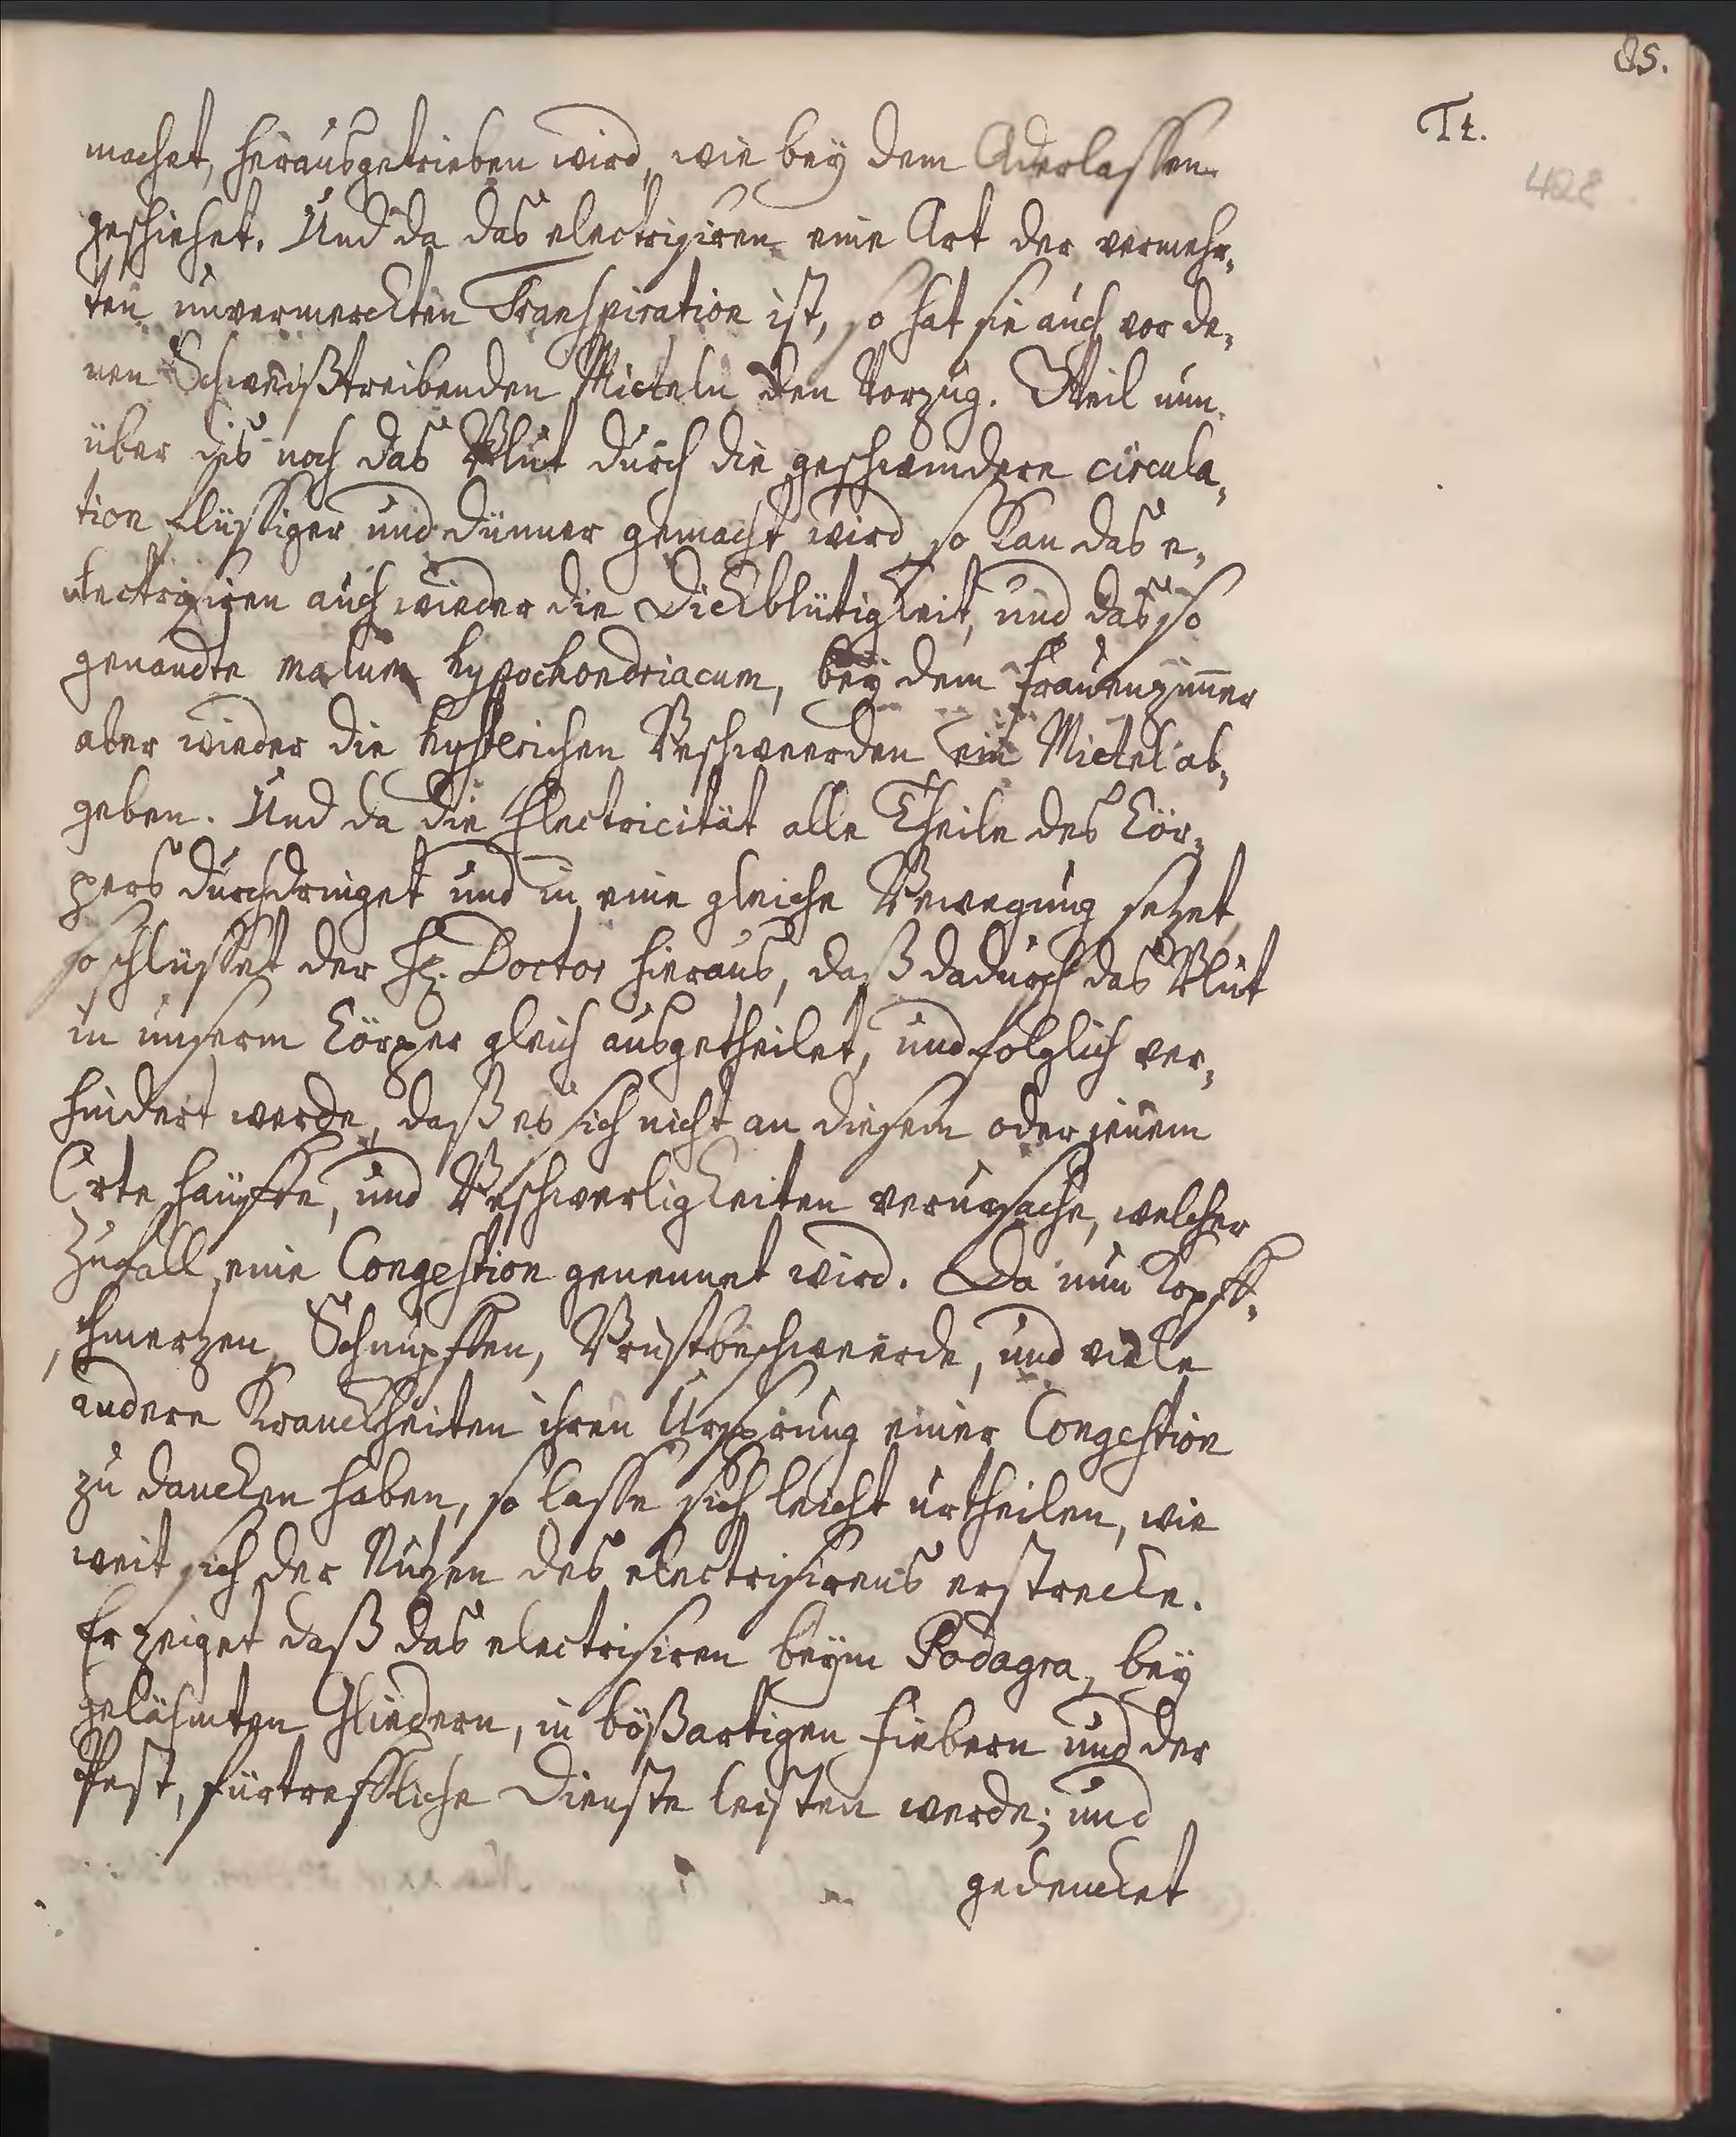 85.
Tt.
428
machet, herausgetrieben wird, wie bey dem Aderlassen
geschiehet. Und da das electrisiren eine Art der vermehr,
ten unvermerckten Transpiration ist, so hat sie auch vor de,
nen Schweißtreibenden Mitteln den Vorzug. Weil nun
über dis noch das Blut durch die geschwindere circula,
tion flüssiger und dünner gemacht wird, so kan das e,
lectrisiren auch wieder die Dickblütigkeit, und das so
genandte malum hypochondriacum, bey dem Frauenzim̅er
aber wieder die hysterichen Beschweerden ein Mittel ab,
geben. Und da die Electricität alle Theile des Cör,
pers durchdringet und in eine gleiche Bewegung setzet,
so schlüsset der H. Doctor hieraus, daß dadurch das Blut
in unserm Cörper gleich ausgetheilet, und folglich ver,
hindert werde, daß es sich nicht an diesem oder jenem
Orte häuffe, und Beschwerligkeiten verursache, welcher
Zufall eine Congestion genennet wird. Da nun Kopff,
schmerzen, Schnupffen, Brustbeschweerde, und viele
andere Kranckheiten ihren Ursprung einer Congestion
zu dancken haben, so lasse sich leicht urtheilen, wie
weit sich der Nutzen des electrisirens erstrecke.
Er zeiget daß das electrisiren beym Podagra, bey
gelähmten Gliedern, in bößartigen Fiebern und der
Pest, fürtreffliche Dienste leisten werde; und
gedencket